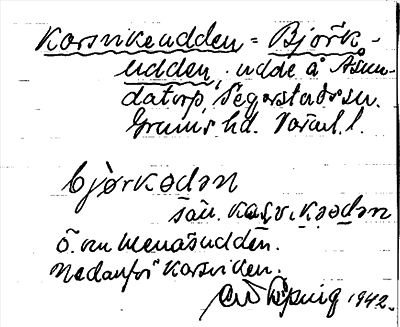 Korsvikeudden = Björk-
udden, udde å Åsun-
datorp, Segerstads sn.
Grums hd. Värml. l.
bjørkədən
sän. kɑs,v,ikəədən
Ö. om Menäsudden.
Nedanför Korsviken.
1942.